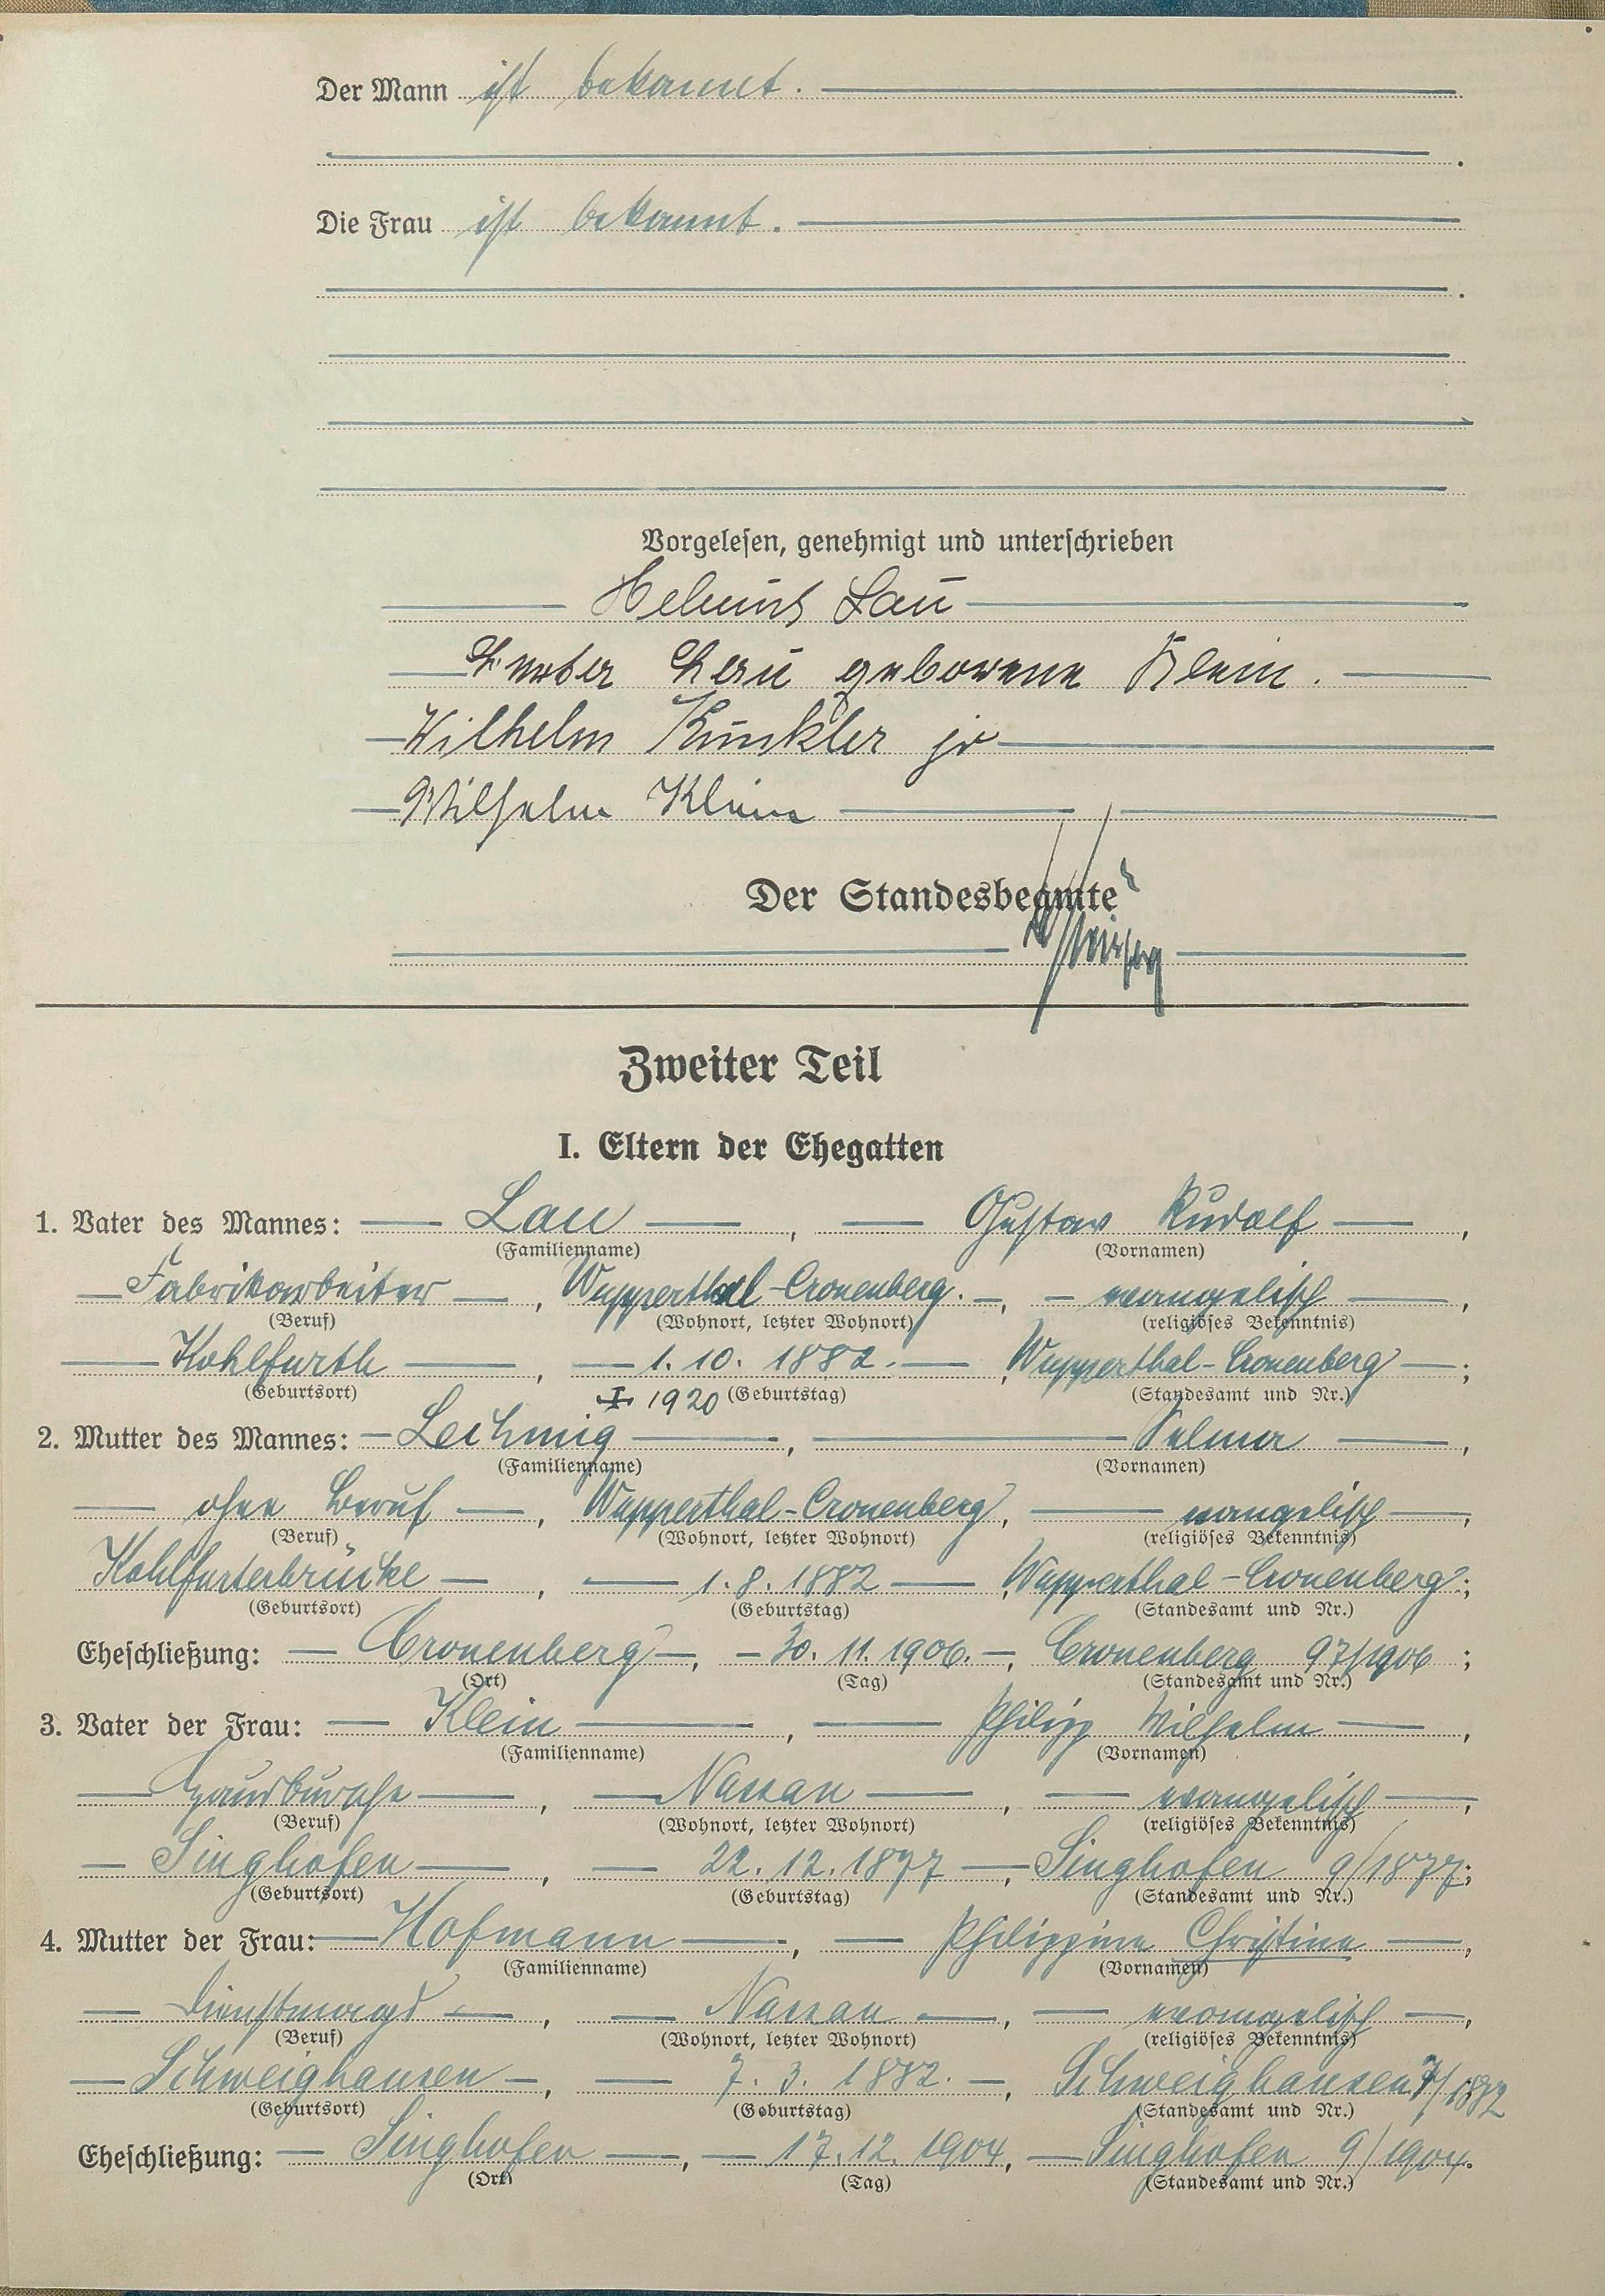 Der Mann ist bekannt.
Die Frau ist bekannt.
Vorgelesen, genehmigt und unterschrieben
Helmut Lau
Lau geborene Klein.
Wilhelm Kunkler jr
Wilhelm Klein
Der Standesbeamte
Zweiter Teil
I. Eltern der Ehegatten
1. Vater des Mannes: Lau, Gustav Rudolf,
(Familienname) (Vornamen)
Fabrikarbeiter, Wupperthal-Cronenberg., evangelisch,
(Beruf) (Wohnort, letzter Wohnort) (religiöses Bekenntnis)
Kohlfurth, 1.10.1882., Wupperthal-Cronenberg;
(Geburtsort) 1920 (Geburtstag) (Standesamt und Nr.)
2. Mutter des Mannes: , Selma,
(Familienname) (Vornamen)
ohne Beruf, Wupperthal-Cronenberg, evangelisch,
(Beruf) (Wohnort, letzter Wohnort) (religiöses Bekenntnis)
Kohlfurterbrücke, 1.8.1882, Wupperthal-Cronenberg;
(Geburtsort) (Geburtstag) (Standesamt und Nr.)
Eheschließung: Cronenberg, 30.11.1906., Cronenberg 97/1906;
(Ort) (Tag) (Standesamt und Nr.)
3. Vater der Frau: Klein, Philipp Wilhelm,
(Familienname) (Vornamen)
, Nassau, evangelisch,
(Beruf) (Wohnort, letzter Wohnort) (religiöses Bekenntnis)
Singhofen, 22.12.1877, Singhofen 9/1877;
(Geburtsort) (Geburtstag) (Standesamt und Nr.)
4. Mutter der Frau: Hofmann, Philippine Christine,
(Familienname) (Vornamen)
Dienstmagd, Nassau, evangelisch,
(Beruf) (Wohnort, letzter Wohnort) (religiöses Bekenntnis)
Schweighausen, 7.3.1882., Schweighausen 7/1882
(Geburtsort) (Geburtstag) (Standesamt und Nr.)
Eheschließung: Singhofen, 17.12.1904, Singhofen 9/1904.
(Ort) (Tag) (Standesamt und Nr.)